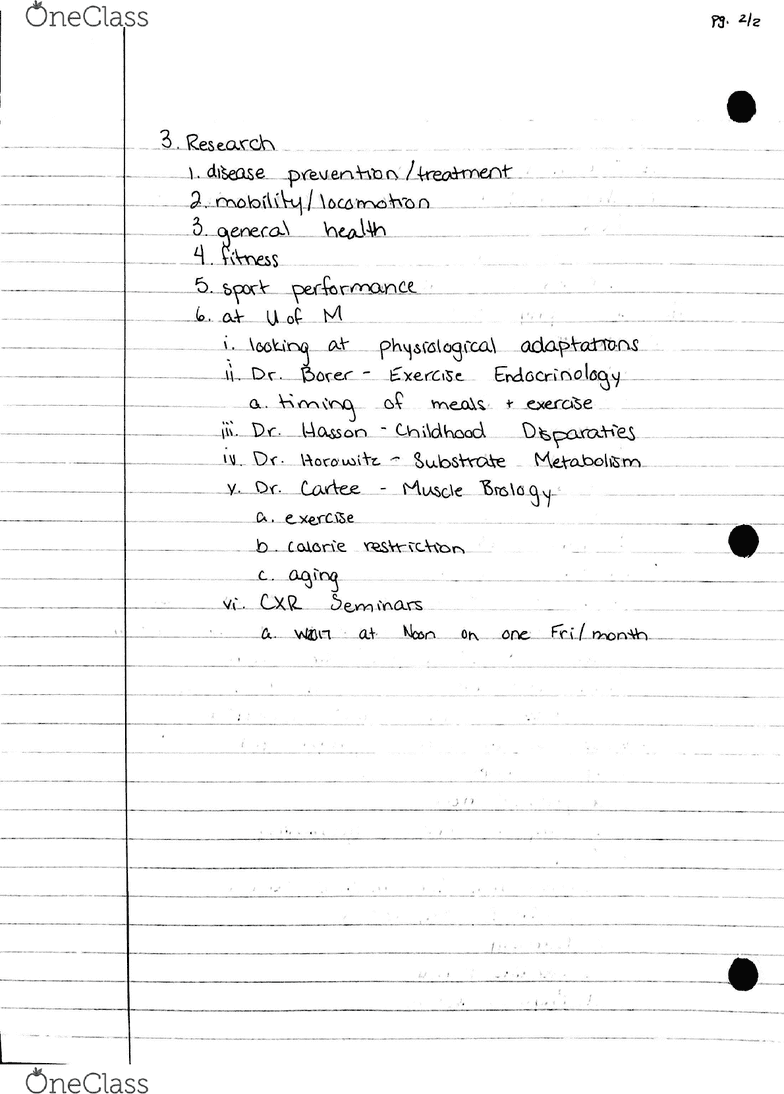 OneClass
pg. 2/2
3. Research
1. disease prevention/treatment
2. mobility/locomotion
3. general health
4. fitness
5. sport performance
6. at U of M
i. looking at physiological adaptations
ii. Dr. Borer - Exercise Endocrinology
a. timing of meals + exercise
iii. Dr. Hasson - Childhood Disparaties
iv. Dr. Horowitz - Substrate Metabolism
v. Dr. Cartee - Muscle Biology
a. exercise
b. calorie restriction
c. aging
vi. CXR Seminars
a. at Noon on one Fri/month
OneClass